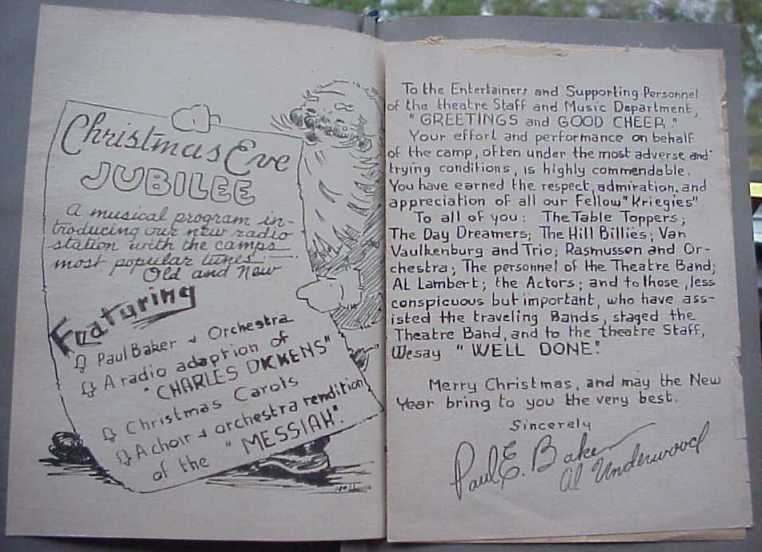 Christmas Eve
JUBILEE
A musical program in-
troducing our new radio
station with the camps
most popular tunes —
Old and New
Featuring
Paul Baker & Orchestra
A radio adaption of
"CHARLES DICKENS"
Christmas Carols
A choir & orchestra rendition
of the "MESSIAH".
To the Entertainers and Supporting Personnel
of the theatre Staff and Music Department,
"GREETINGS and GOOD CHEER"
Your effort and performance on behalf
of the camp, often under the most adverse and
trying conditions, is highly commendable.
You have earned the respect, admiration, and
appreciation of all our Fellow "Kriegies"
To all of you: The Table Toppers;
The Day Dreamers; The Hill Billies; Van
Vaulkenburg and Trio; Rasmussen and Or-
chestra; The personnel of the Theatre Band;
AL Lambert; the Actors; and to those, less
conspicuous but important, who have ass-
isted the traveling Bands, staged the
Theatre Band, and to the theatre Staff,
We say "WELL DONE".
Merry Christmas, and may the New
Year bring to you the very best.
Sincerely
Paul E. Baker
Al Underwood